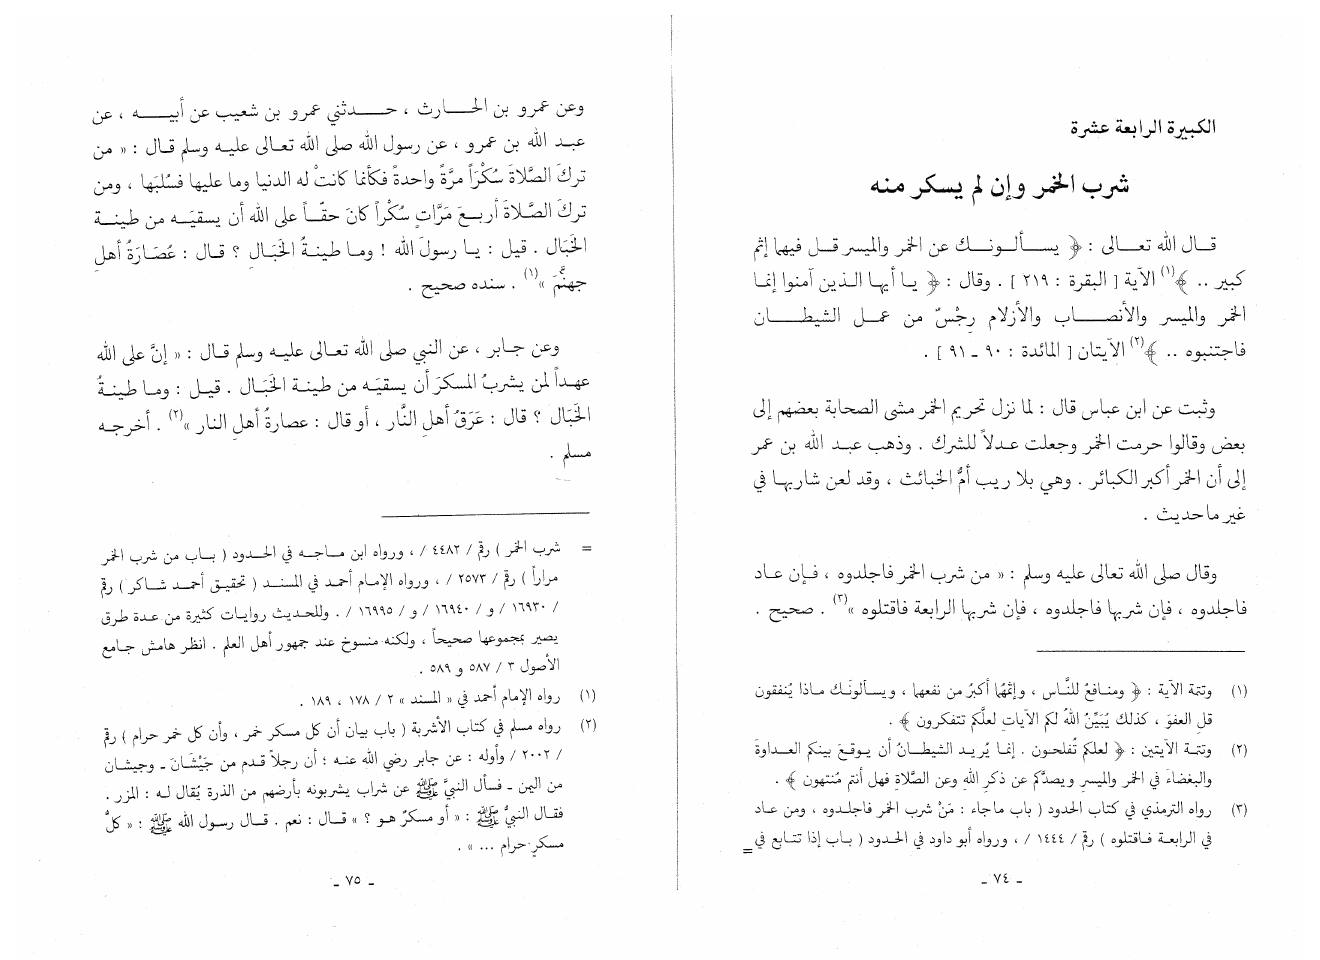 الكبيرة الرابعة عشرة
شرب الخمر وإن لم يسكر منه
قال الله تعالى : ﴿ يسألونك عن الخمر والميسر قل فيها إثم
كبير .. ﴾(١) الآية [ البقرة : ٢١٩ ] . وقال : ﴿ يا أيها الذين آمنوا إنما
الخمر والميسر والأنصاب والأزلام رجْسٌ من عمل الشيطان
فاجتنبوه .. ﴾(٢) الآيتان [ المائدة : ٩٠ ـ ٩١ ] .
وثبت عن ابن عباس قال : لما نزل تحريم الخمر مشى الصحابة بعضهم إلى
بعض وقالوا حرمت الخمر وجعلت عدلاً للشرك . وذهب عبد الله بن عمر
إلى أن الخمر أكبر الكبائر . وهي بلا ريب أمُّ الخبائث ، وقد لعن شاربها في
غير ما حديث .
وقال صلى الله تعالى عليه وسلم : « من شرب الخمر فاجلدوه ، فإن عاد
فاجلدوه ، فإن شربها فاجلدوه ، فإن شربها الرابعة فاقتلوه »(٣) . صحيح .
(١) وتتمة الآية : ﴿ ومنافعُ للنَّاس ، وإثمُهُا أكبرُ من نفعها ، ويسألونَك ماذا يُنفقون
قل العفوَ ، كذلك يُبَيِّنُ اللهُ لكم الآياتِ لعلَّكم تتفكرون ﴾ .
(٢) وتتمة الآيتين : ﴿ لعلكم تُفلحون . إنما يُريد الشيطانُ أن يوقعَ بينكم العداوةَ
والبغضاءَ في الخمر والميسرِ ويصدَّكم عن ذكرِ اللهِ وعن الصَّلاةِ فهل أنتم مُنتهون ﴾ .
(٣) رواه الترمذي في كتاب الحدود ( باب ماجاء : مَنْ شرب الخمر فاجلدوه ، ومن عاد
في الرابعة فاقتلوه ) رقم / ١٤٤٤ / ، ورواه أبو داود في الحدود ( باب إذا تتابع في =
ـ ٧٤ ـ
وعن عمرو بن الحارث ، حدثني عمرو بن شعيب عن أبيه ، عن
عبد الله بن عمرو ، عن رسول الله صلى الله تعالى عليه وسلم قال : « من
تركَ الصَّلاةَ سُكْرَاً مرَّةً واحدةً فكأنما كانتْ له الدنيا وما عليها فسُلبَها ، ومن
تركَ الصَّلاةَ أربعَ مَرَّاتٍ سُكْراً كانَ حقَّاً على الله أن يسقيَه من طينة
الخَبَال . قيل : يا رسولَ الله ! وما طينةُ الخَبَال ؟ قال : عُصَارَةُ أهل
جهنَّمَ »(١) . سنده صحيح .
وعن جابر ، عن النبي صلى الله تعالى عليه وسلم قال : « إنَّ على الله
عهداً لمن يشربُ المسكرَ أن يسقيَه من طينة الخَبَال . قيل : وما طينةُ
الخَبَال ؟ قال : عَرَقُ أهلِ النَّار ، أو قال : عصارةُ أهل النار »(٢) . أخرجه
مسلم .
= شرب الخمر ) رقم / ٤٤٨٢ / ، ورواه ابن ماجه في الحدود ( باب من شرب الخمر
مراراً ) رقم / ٢٥٧٣ / ، ورواه الإمام أحمد في المسند ( تحقيق أحمد شاكر ) رقم
/ ١٦٩٣٠ / و / ١٦٩٤٠ / و / ١٦٩٩٥ / . وللحديث روايات كثيرة من عدة طرق
يصير بمجموعها صحيحاً ، ولكنه منسوخ عند جمهور أهل العلم . انظر هامش جامع
الأصول ٣ / ٥٨٧ و ٥٨٩ .
(١) رواه الإمام أحمد في « المسند » ٢ / ١٧٨ ، ١٨٩ .
(٢) رواه مسلم في كتاب الأشربة ( باب بيان أن كل مسكر خمر ، وأن كل خمر حرام ) رقم
/ ٢٠٠٢ / وأوله : عن جابر رضي الله عنه ؛ أن رجلاً قدم من جَيْشَانَ ـ وجيشان
من اليمن ـ فسأل النبيَّ ﷺ عن شراب يشربونه بأرضهم من الذرة يُقال له : المزر .
فقال النبيُّ ﷺ : « أو مسكرٌ هو ؟ » قال : نعم . قال رسول الله ﷺ : « كلُّ
مسكرٍ حرام ... » .
ـ ٧٥ ـ